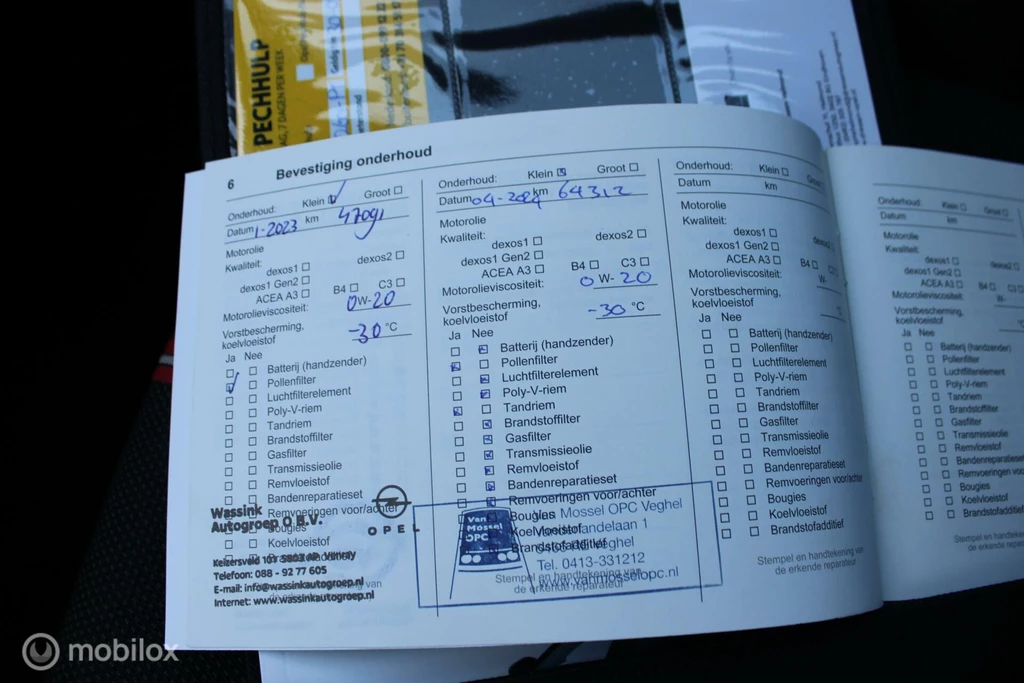 PECHHULP
AG, 7 DAGEN PER WEEK
6 Bevestiging onderhoud
Onderhoud: Klein Groot
Datum 1-2023 km 47091
Motorolie
Kwaliteit:
dexos1 dexos2
dexos1 Gen2
ACEA A3 B4 C3
Motorolieviscositeit: 0W-20
Vorstbescherming,
koelvloeistof -30 °C
Ja Nee
Batterij (handzender)
Pollenfilter
Luchtfilterelement
Poly-V-riem
Tandriem
Brandstoffilter
Gasfilter
Transmissieolie
Remvloeistof
Bandenreparatieset
Remvoeringen voor/achter
Bougies
Koelvloeistof
Wassink
Autogroep O B.V.
OPEL
Keizersveld 101 5803 AP Venray
Telefoon: 088 - 92 77 605
E-mail: info@wassinkautogroep.nl
Internet: www.wassinkautogroep.nl
Onderhoud: Klein Groot
Datum 04-2024 km 64312
Motorolie
Kwaliteit:
dexos1 dexos2
dexos1 Gen2
ACEA A3 B4 C3
Motorolieviscositeit: 0 W-20
Vorstbescherming,
koelvloeistof -30 °C
Ja Nee
Batterij (handzender)
Pollenfilter
Luchtfilterelement
Poly-V-riem
Tandriem
Brandstoffilter
Gasfilter
Transmissieolie
Remvloeistof
Bandenreparatieset
Remvoeringen voor/achter
Bougies
Koelvloeistof
Brandstofadditief
Stempel en handtekening van
de erkende reparateur
Van
Mossel
OPC
Van Mossel OPC Veghel
Veghel
Tel. 0413-331212
www.vanmosselopc.nl
Onderhoud: Klein Groot
Datum km
Motorolie
Kwaliteit:
dexos1 dexos2
dexos1 Gen2
ACEA A3 B4 C3
Motorolieviscositeit: W-
Vorstbescherming,
koelvloeistof °C
Ja Nee
Batterij (handzender)
Pollenfilter
Luchtfilterelement
Poly-V-riem
Tandriem
Brandstoffilter
Gasfilter
Transmissieolie
Remvloeistof
Bandenreparatieset
Remvoeringen voor/achter
Bougies
Koelvloeistof
Brandstofadditief
Stempel en handtekening van
de erkende reparateur
Onderhoud: Klein Groot
Datum km
Motorolie
Kwaliteit:
dexos1 dexos2
dexos1 Gen2
ACEA A3 B4 C3
Motorolieviscositeit: W-
Vorstbescherming,
koelvloeistof
Ja Nee
Batterij (handzender)
Pollenfilter
Luchtfilterelement
Poly-V-riem
Tandriem
Brandstoffilter
Gasfilter
Transmissieolie
Remvloeistof
Bandenreparatieset
Remvoeringen voor
Bougies
Koelvloeistof
Brandstofadditief
Stempel en handtekening
de erkende
mobilox